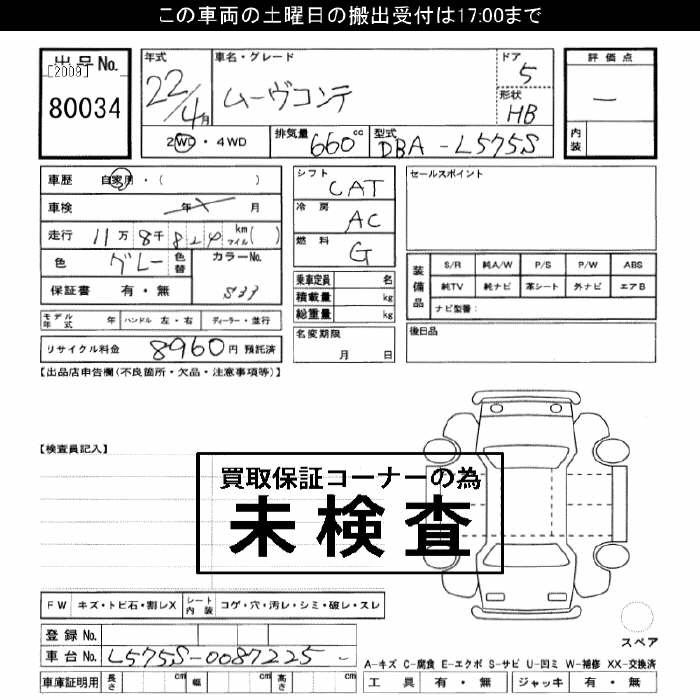 この車両の土曜日の搬出受付は17:00まで
出品No.
[2009]
80034
年式
22/4月
車名・グレード
ムーヴコンテ
ドア
5
形状
HB
評価点
―
内装
2WD・4WD
排気量
660cc
型式
DBA-L575S
車歴 自家用・( )
車検 年 月
走行 11万8千824 km マイル( )
色 グレー 色替
カラーNo.
S39
保証書 有・無
モデル年式 年 ハンドル 左・右 ディーラー・並行
リサイクル料金 8960円 預託済
シフト
CAT
冷房
AC
燃料
G
乗車定員 名
積載量 kg
総重量 kg
名変期限
月 日
セールスポイント
装備品
S/R 純A/W P/S P/W ABS
純TV 純ナビ 革シート 外ナビ エアB
ナビ型番:
後日品
【出品店申告欄(不良箇所・欠品・注意事項等)】
【検査員記入】
買取保証コーナーの為
未検査
FW キズ・トビ石・割レX シート内装 コゲ・穴・汚レ・シミ・破レ・スレ
登録No.
車台No. L575S-0087225-
車庫証明用 長さ cm 幅 cm 高さ cm
スペア
A-キズ C-腐食 E-エクボ S-サビ U-凹ミ W-補修 XX-交換済
工具 有・無 ジャッキ 有・無